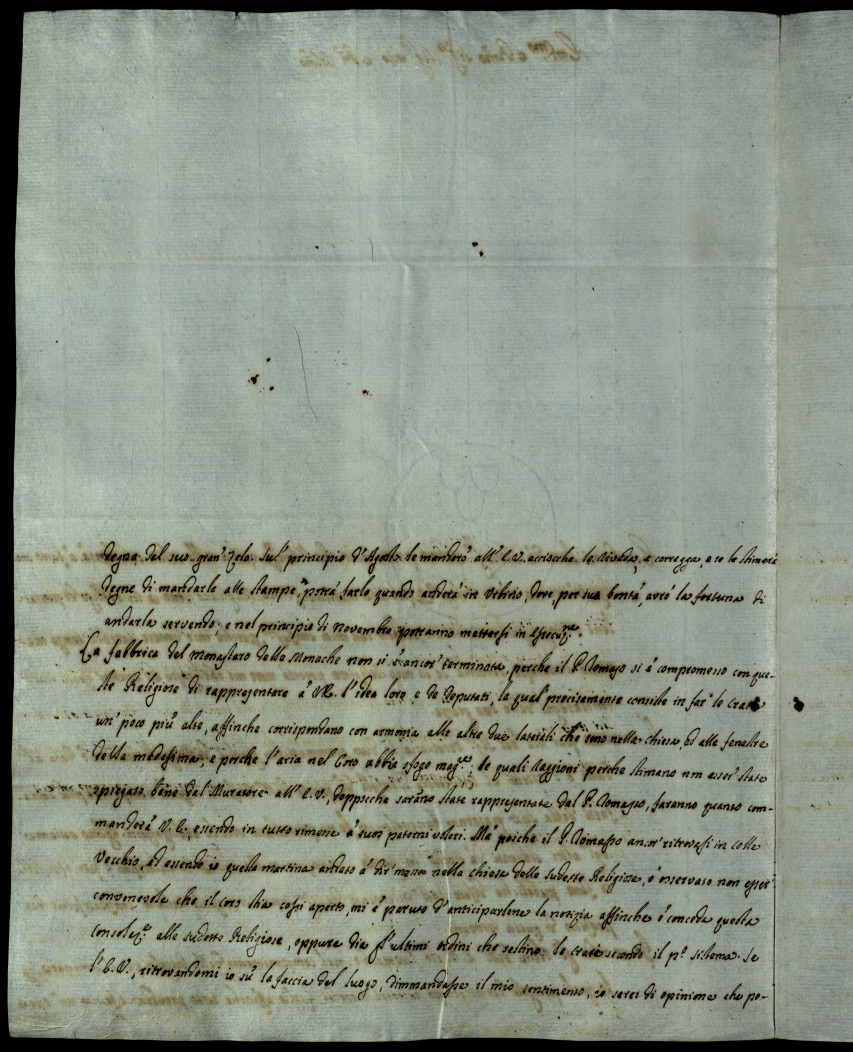 degna del suo gran' Zelo. Sul' principio d'Agosto le manderò all' E.V. acciocche le riveda, e corregga, e se le stimerà
degne di mandarle alle stampe, potrà farlo quando anderà in Urbino, dove, per sua bontà, avrò la fortuna di
andarla servendo; e nel principio di Novembre potranno mettersi in esecuz.ne.
La fabbrica del monastero delle Monache non si è ancor' terminata, perche il P. Tomasso si è compromesso con que-
ste Religiose di rappresentare à V.E. l'idea loro, e de Deputati, la qual' precisamente consiste in far' le crate
un' poco più alte, affinche corrispondano con armonia alle altre due laterali che sono nella chiesa, ed alle fenestre
della medesima, e perche l'aria nel Coro abbia sfogo mag.re; le quali raggioni perche stimano non esser' state
spiegate bene dal' Muratore all' E.V., doppoche saranno state rappresentate dal P. Tomasso, faranno quanto com-
manderà V.E. essendo in tutto rimesse à suoi paterni voleri. Mà poiche il P. Tomasso ancor' ritrovasi in Colle
Vecchio, ed essendo io questa mattina andato à dir' messa nella chiesa delle sudette Religiose, è osservato non esser'
convenevole che il coro stia così aperto, mi è paruto d'anticiparlene la notizia affinche ò conceda questa
consolaz.ne alle sudette Religiose, oppure dia gl'ultimi ordini che restino le crate secondo il p.o sistema. Se
l'E.V., ritrovandomi io sù la faccia del luogo, dimmandasse il mio sentimento, io sarei di opinione che po-